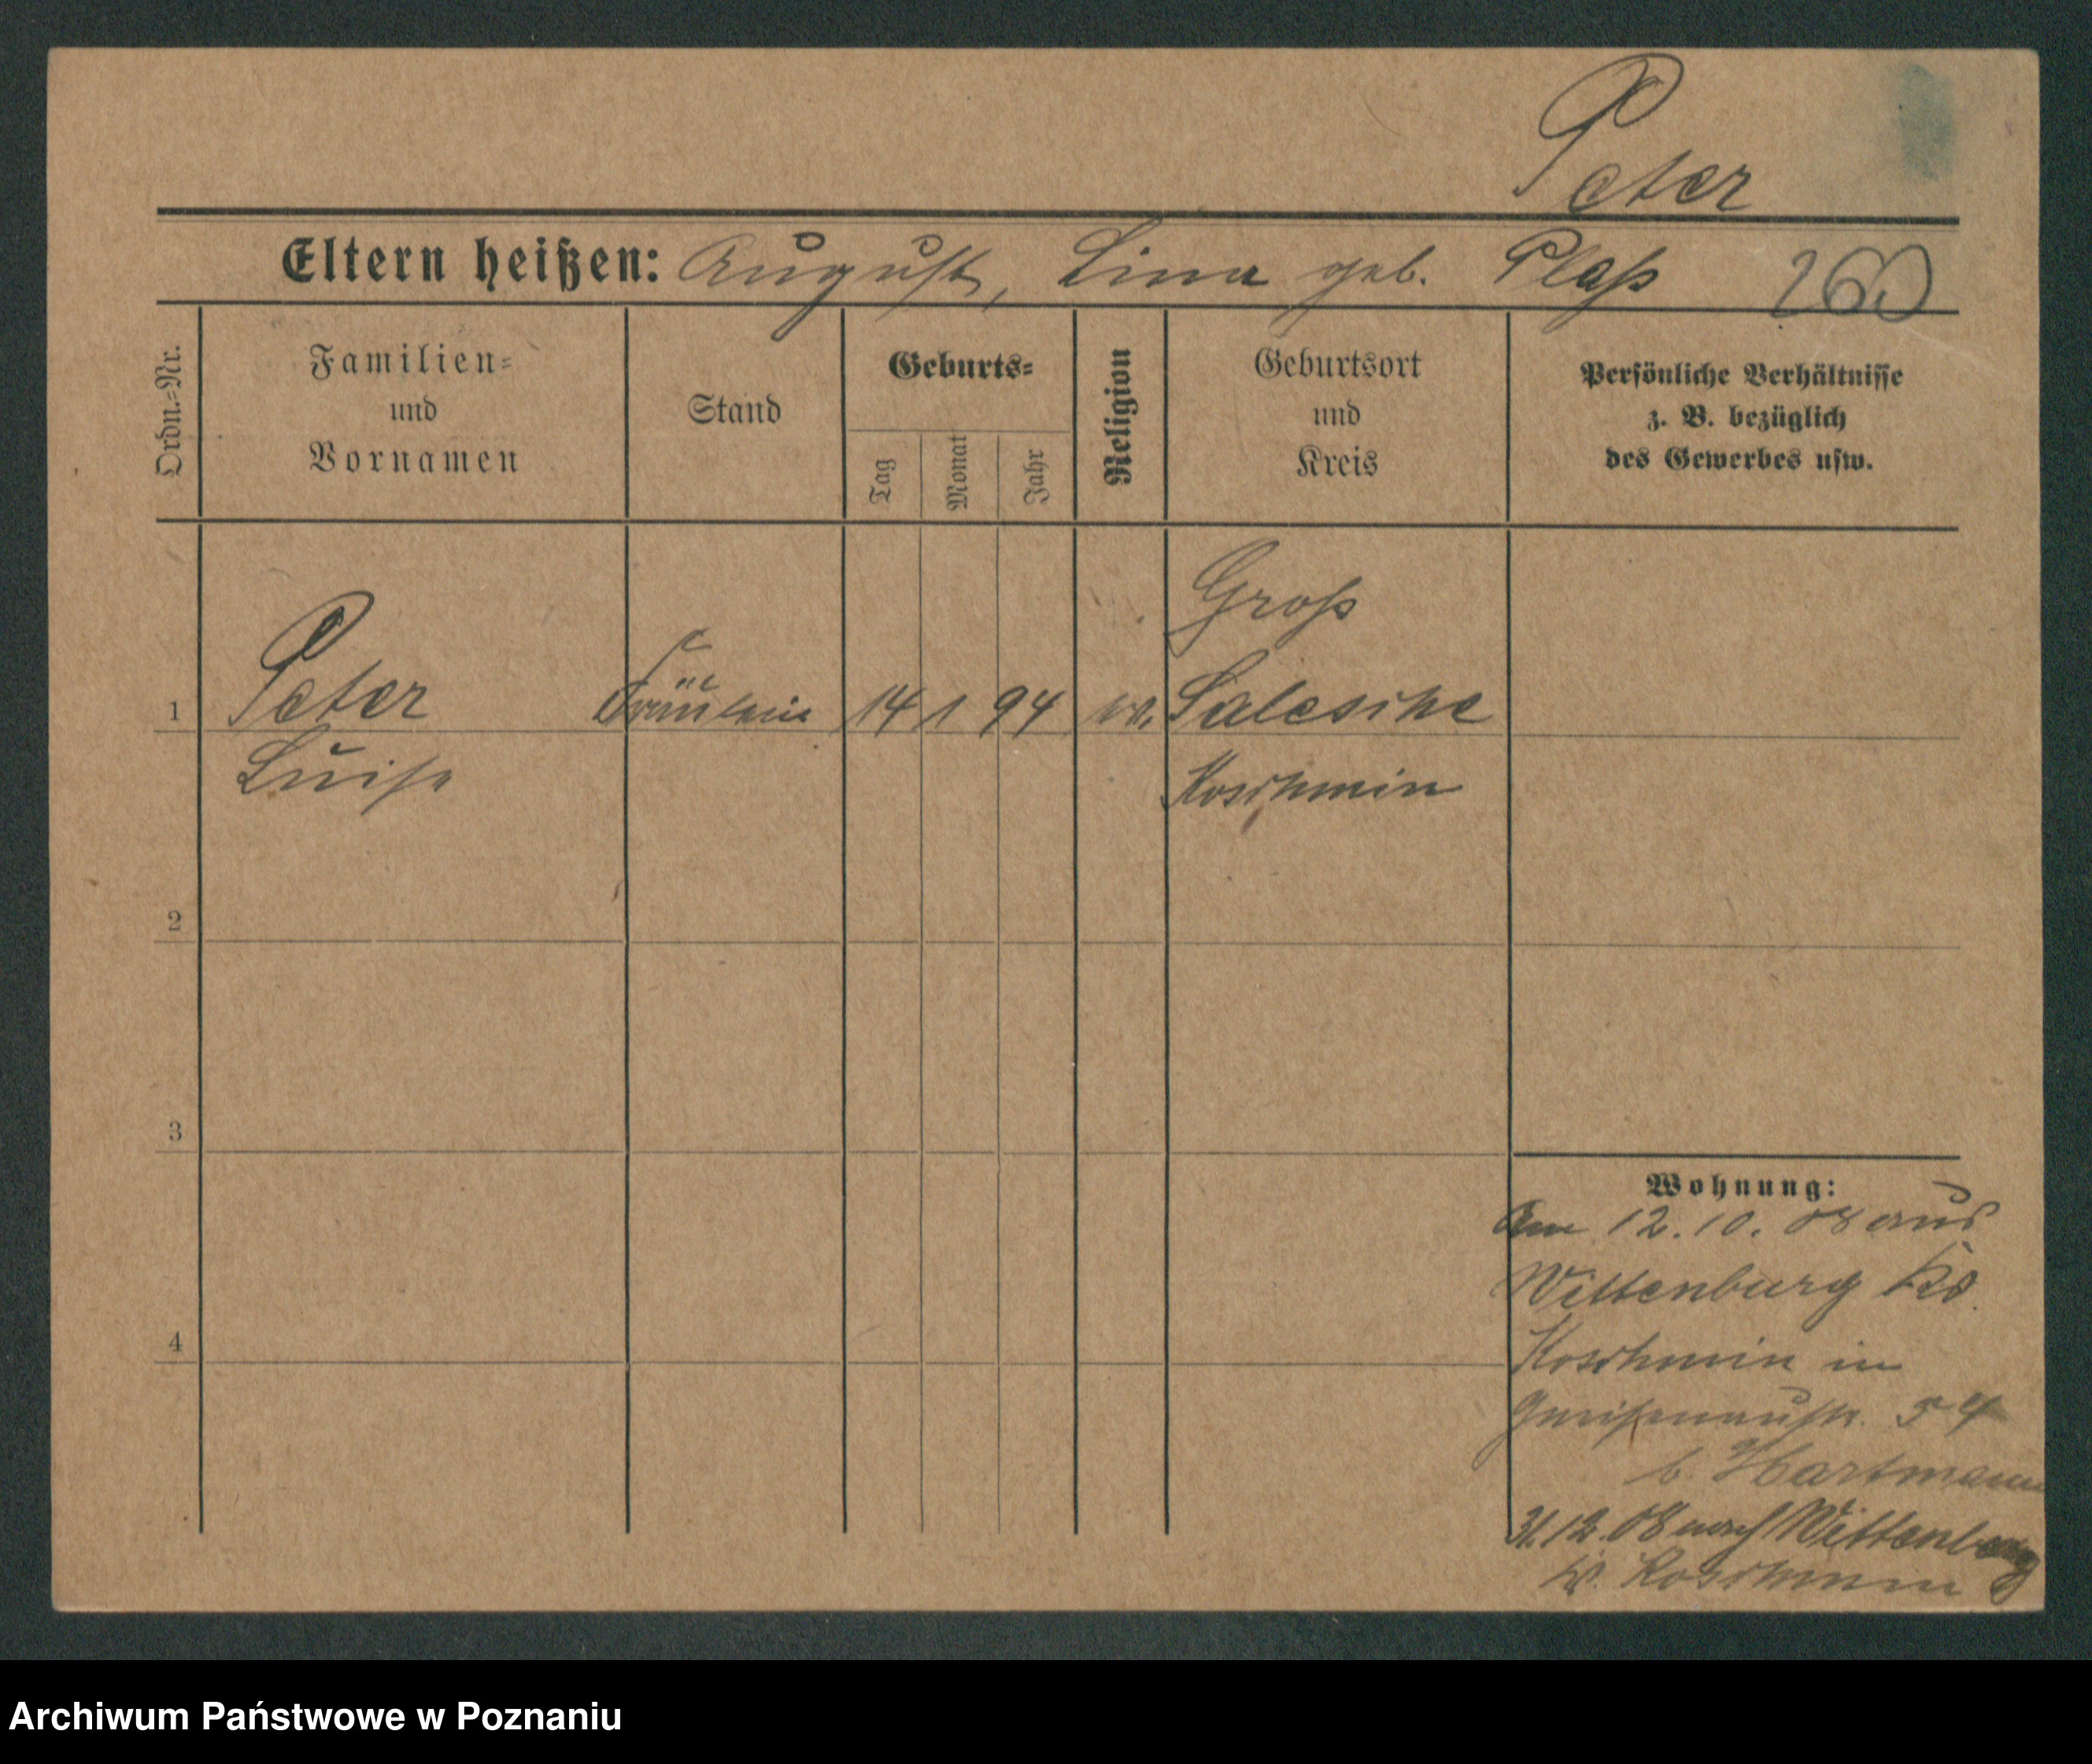 Peter
Eltern heißen: August, Lina geb. Plaß 260
Ordn.-Nr.
Familien- und Vornamen
Stand
Geburts-
Tag
Monat
Jahr
Religion
Geburtsort und Kreis
Persönliche Verhältnisse
z. B. bezüglich
des Gewerbes usw.
Groß
1 Peter Fräulein 14 1 94 ev. Salesche
Luise Koschmin
2
3
4
Wohnung:
Am 12.10.08 aus
Wittenburg Ks.
Koschmin in
Gneisenaustr. 5
b. Hartmann
31.12.08 nach Wittenberg
Koschmin
Archiwum Państwowe w Poznaniu